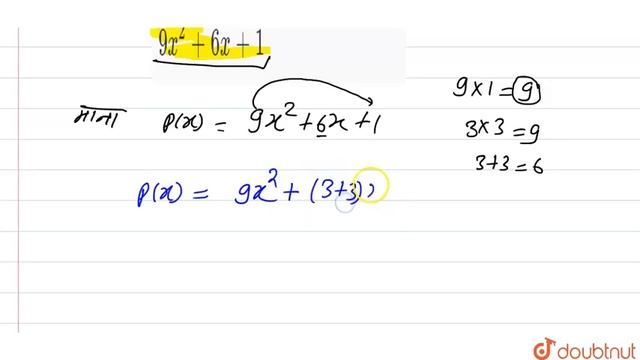 9x² + 6x + 1
माना P(x) = 9x² + 6x + 1
9 × 1 = 9
3 × 3 = 9
3 + 3 = 6
P(x) = 9x² + (3+3)
doubtnut